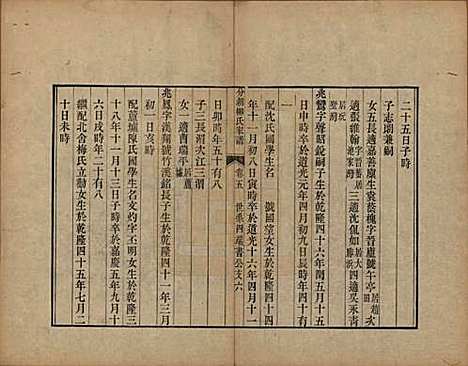 二十五日子時
子志閎兼嗣
女五長適嘉善廩生黃蓉槐字晉廬號午亭居趙
適張維翰字晉蕃居池家灣三適沈侃如居大聯浜四適吳永青
居
兆鸞字聲昭銳嗣子生於乾隆四十六年閏五月十五
日申時卒於道光元年四月初九日辰時年四十一
配沈氏國學生名　號國望女生於乾隆四十六
年十一月初八日寅時卒於道光十六年四月十一
日卯時年五十有八
子三長淵次江三淵
女一適曹瑞平居蘆墟
分湖柳氏家譜　卷五　世系四逵書公支六
兆鳳字漢翔號竹漢銘長子生於乾隆四十一年三月
初一日亥時
配蘆墟陳氏國學生名文灼字丕明女生於乾隆三
十八年十一月十三日子時卒於嘉慶五年九月十
六日戌時年二十有八
繼配北舍梅氏立勳女生於乾隆四十五年七月二
十日未時